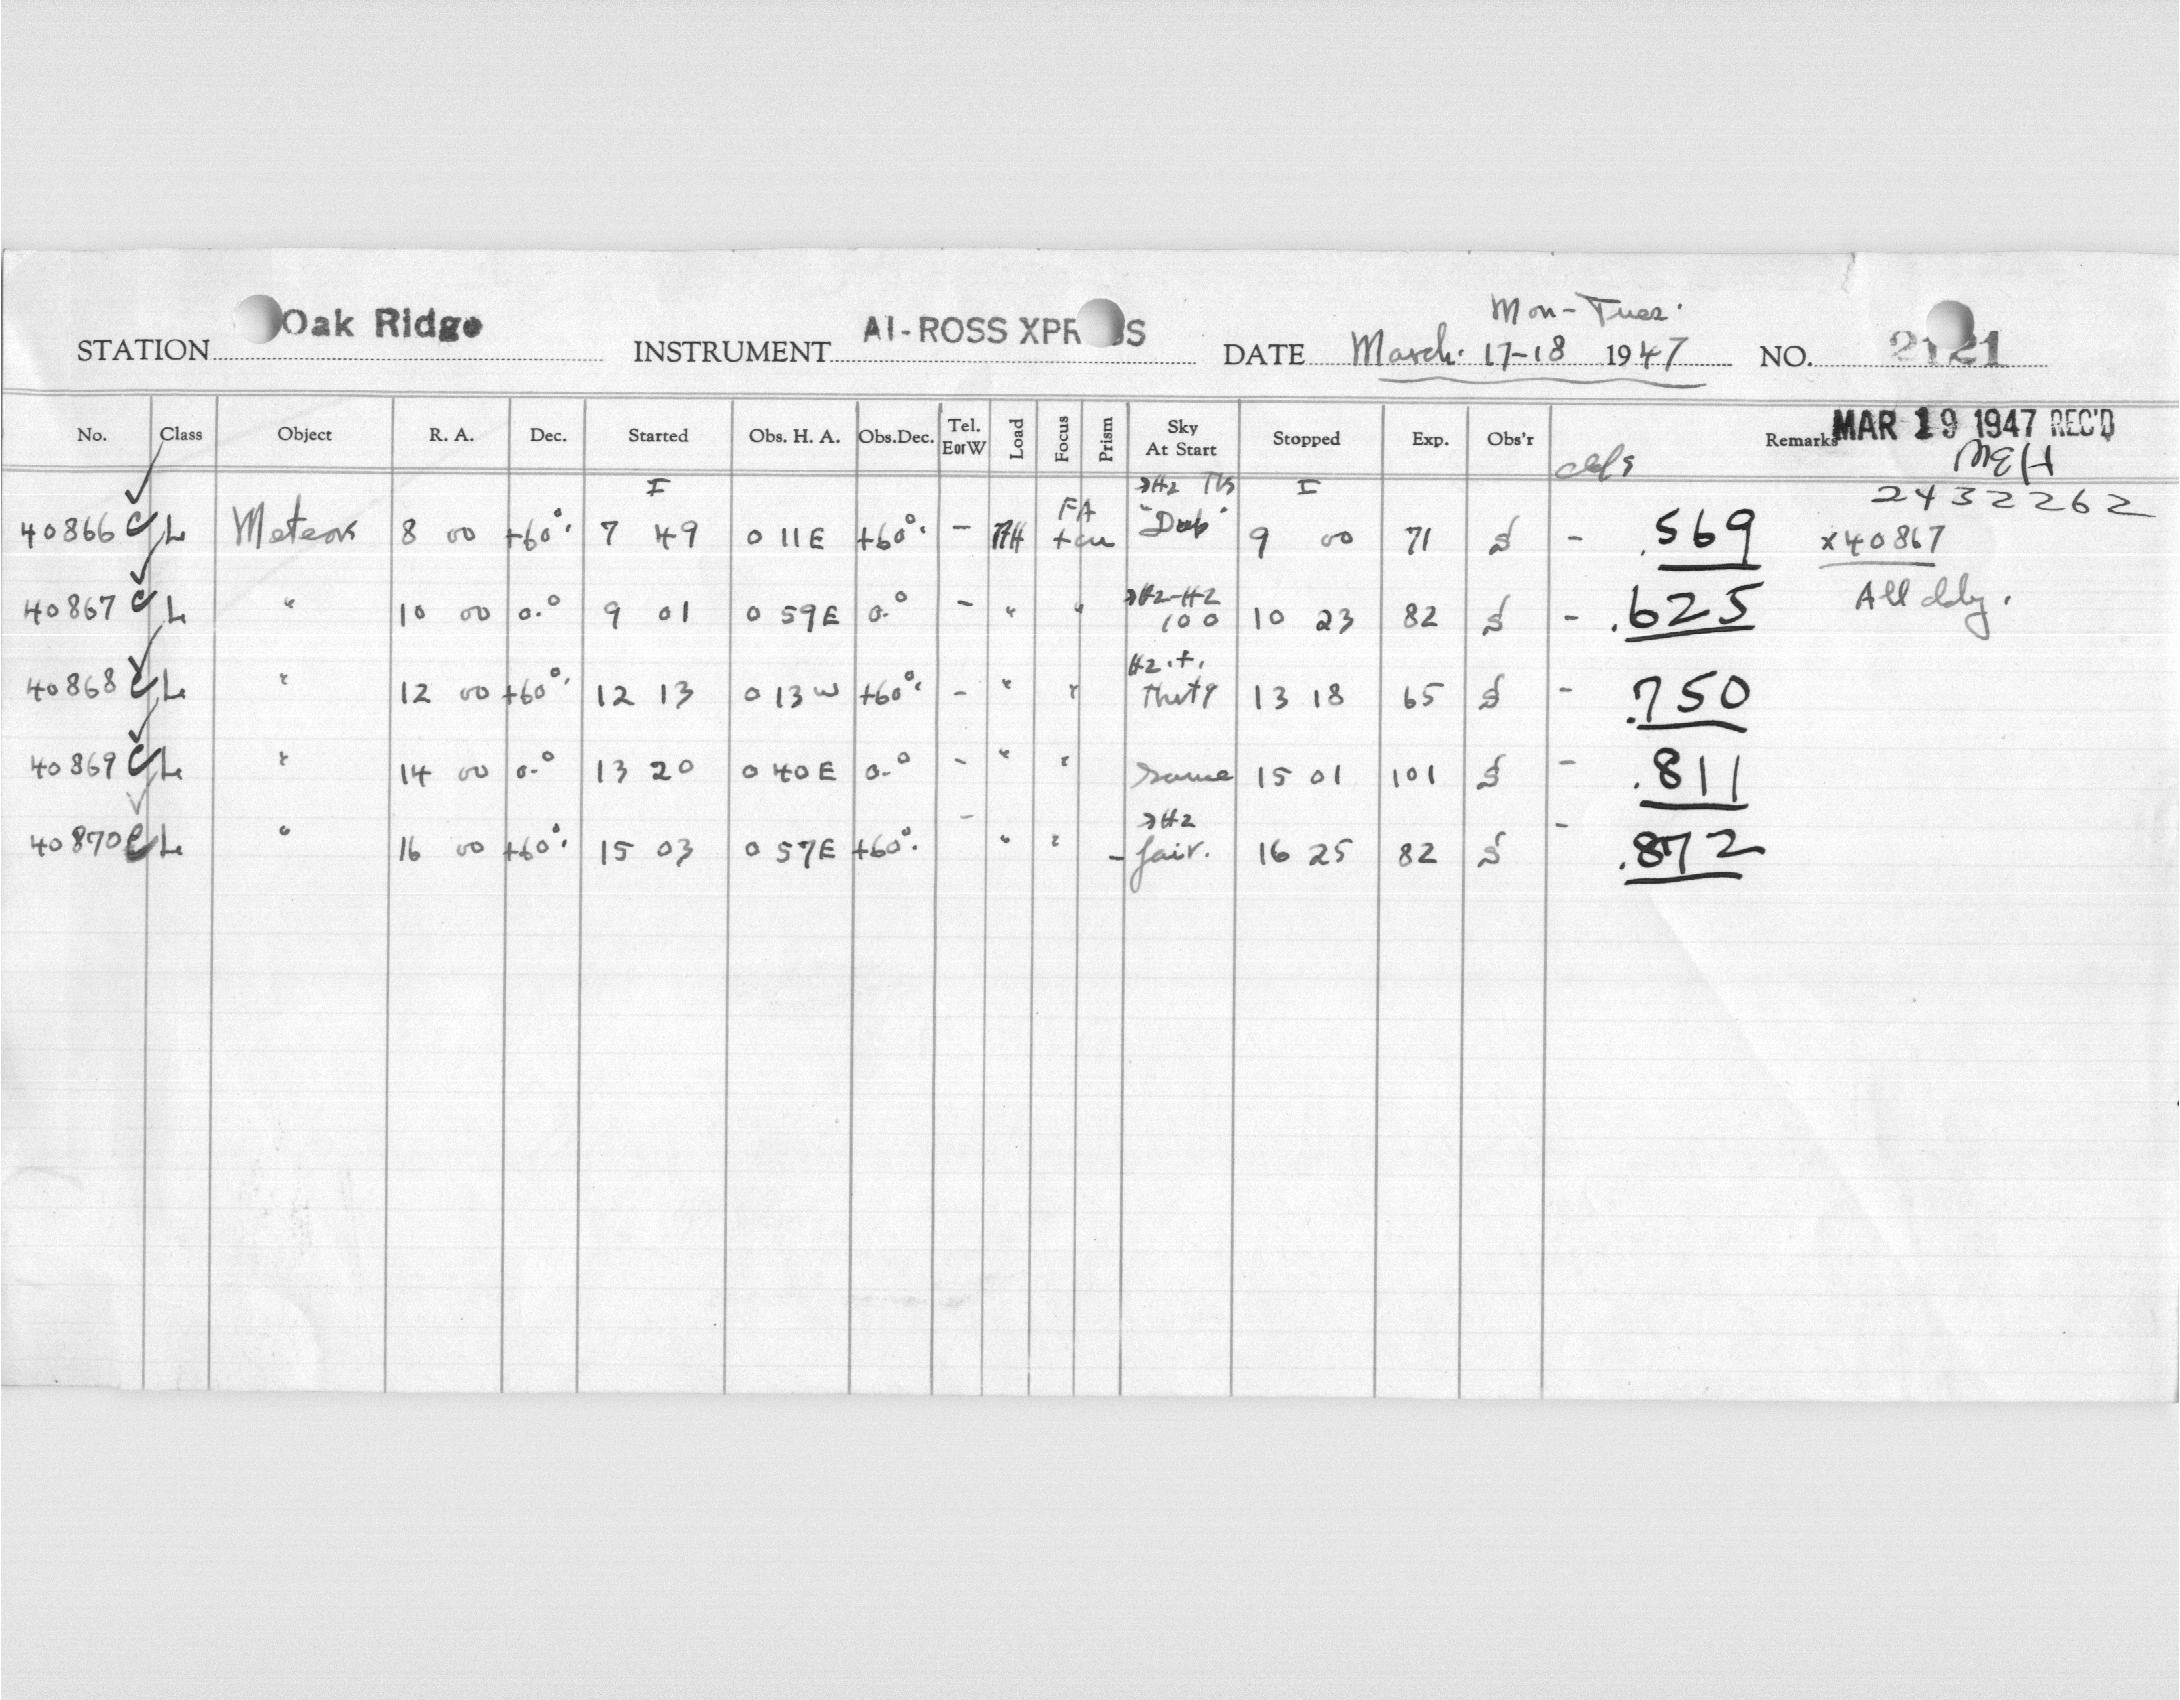 Mon-Tues.
STATION Oak Ridge INSTRUMENT AI-ROSS XPR SS DATE March. 17-18 1947 NO. 2121
No. Class Object R. A. Dec. Started Obs. H. A. Obs.Dec. Tel. E or W Load Focus Prism Sky At Start Stopped Exp. Obs'r Remarks MAR 19 1947 REC'D
MEH
2432262
40866 C L Meteors 8 00 +60°. 7 49 0 11E +60°. - FA 9 00 71 - .569 x40867
40867 C L " 10 00 0.° 9 01 0 59E 0.° - " " H2-H2 100 10 23 82 - .625 All ddy.
40868 C L " 12 00 +60°. 12 13 0 13W +60°. - " " H2.+. 13 18 65 - .750
40869 C L " 14 00 0.° 13 20 0 40E 0.° - " " same 15 01 101 - .811
40870 C L " 16 00 +60°. 15 03 0 57E +60°. - " " - >H2 fair. 16 25 82 - .872